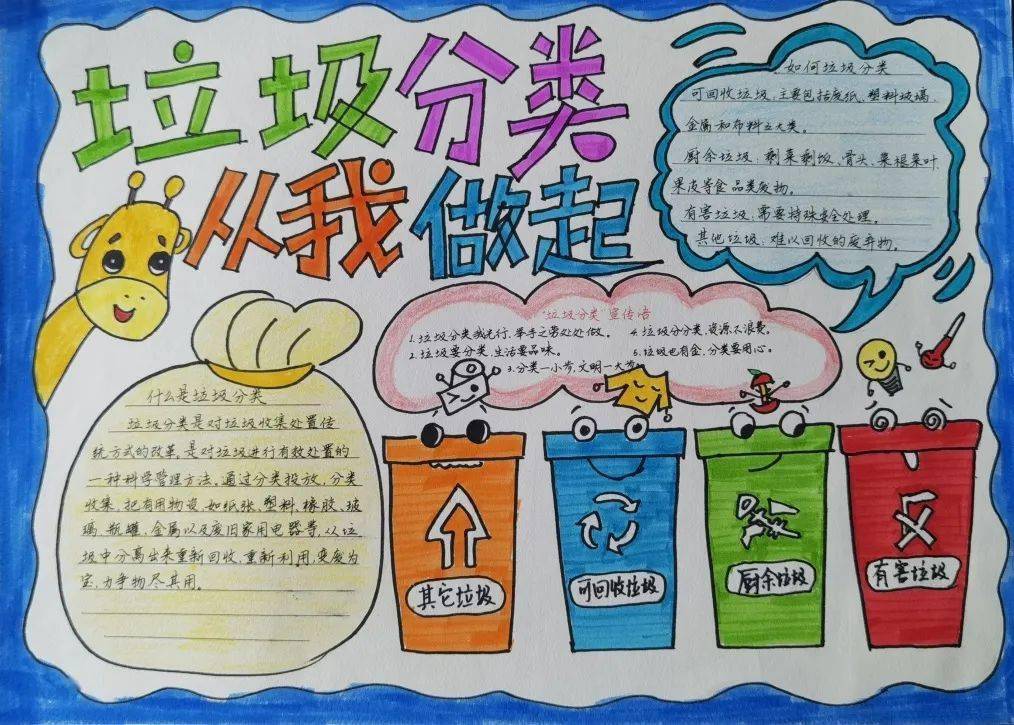 垃圾分类
从我做起
如何垃圾分类
可回收垃圾、主要包括废纸、塑料玻璃、
金属和布料五大类。
厨余垃圾、剩菜剩饭、骨头、菜根菜叶
果皮等食品类废物。
有害垃圾、需要特殊安全处理。
其他垃圾、难以回收的废弃物。
“垃圾分类”宣传语
1.垃圾分类我先行、举手之劳处处做。
2.垃圾要分类、生活要品味。
3.分类一小步、文明一大步。
4.垃圾分分类、资源不浪费。
5.垃圾也有金、分类要用心。
什么是垃圾分类
垃圾分类是对垃圾收集处置传
统方式的改革、是对垃圾进行有效处置的
一种科学管理方法、通过分类投放、分类
收集、把有用物资、如纸张、塑料、橡胶、玻
璃、瓶罐、金属以及废旧家用电器等、从垃
圾中分离出来重新回收、重新利用、变废为
宝、力争物尽其用。
其它垃圾
可回收垃圾
厨余垃圾
有害垃圾